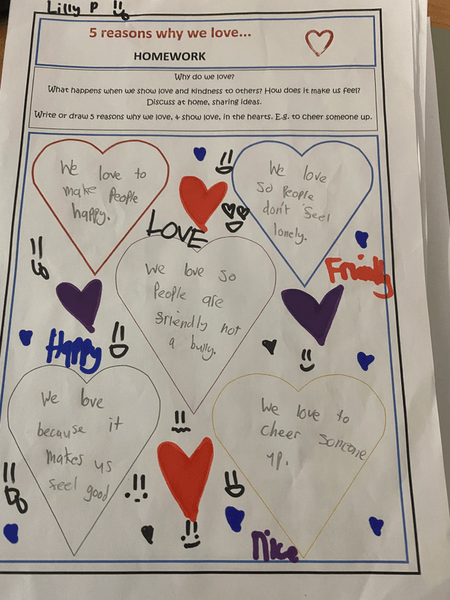 Lilly P
5 reasons why we love...
HOMEWORK
Why do we love?
What happens when we show love and kindness to others? How does it make us feel?
Discuss at home, sharing ideas.
Write or draw 5 reasons why we love, & show love, in the hearts. E.g. to cheer someone up.
We love to
make people
happy.
We love
so people
don't feel
lonely.
LOVE
Friendly
We love so
people are
friendly not
a bully.
Happy
We love
because it
makes us
feel good
We love to
cheer someone
up.
Nice